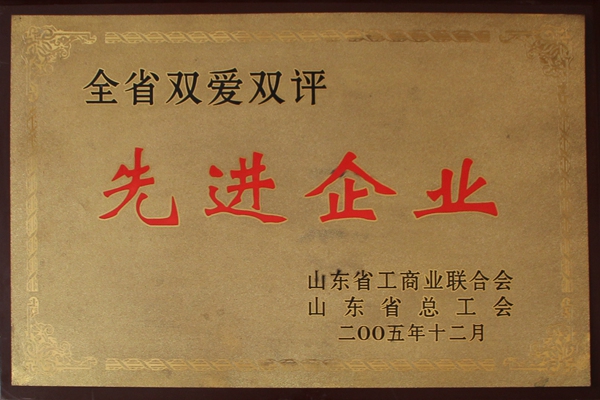 全省双爱双评
先进企业
山东省工商业联合会
山东省总工会
二OO五年十二月